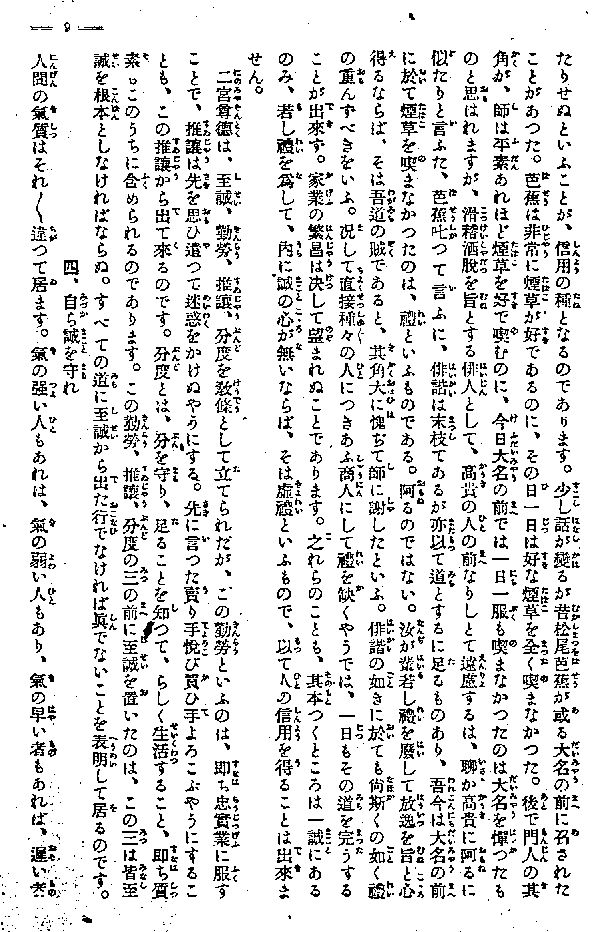 — 9 —
たりせぬといふことが、信用の種となるのであります。少し話が變るが昔松尾芭蕉が或る大名の前に召された
ことがあつた。芭蕉は非常に煙草が好であるのに、その日一日は好な煙草を全く喫まなかつた。後で門人の其
角が、師は平素あれほど煙草を好で喫むのに、今日大名の前では一日一服も喫まなかつたのは大名を憚つたも
のと思はれますが、滑稽洒脱を旨とする俳人として、高貴の人の前なりしとて遠慮するは、聊か高貴に阿るに
似たりと言ふた、芭蕉叱つて言ふに、俳諧は末枝てあるが亦以て道とするに足るものあり、吾今は大名の前
に於て煙草を喫まなかつたのは、禮といふものである。阿るのではない。汝が輩若し禮を廢して放逸を旨と心
得るならば、そは吾道の賊であると、其角大に愧ぢて師に謝したといふ。俳諧の如きに於ても尚斯くの如く禮
の重んずべきをいふ。况して直接種々の人につきあふ商人にして禮を缺くやうでは、一日もその道を完うする
ことが出來す。家業の繁昌は决して望まれぬことであります。之れらのことも、其本つくところは一誠にある
のみ、若し禮を爲して、内に誠の心が無いならば、そは虚禮といふもので、以て人の信用を得ることは出來ま
せん。
二宮尊德は、至誠、勤勞、推讓、分度を敎條として立てられだが、この勤勞といふのは、即ち忠實業に服す
ことで、推讓は先を思ひ遣つて迷惑をかけぬやうにする。先に言つた賣り手悅び買ひ手よろこぶやうにするこ
とも、この推讓から出て來るのです。分度とは、分を守り、足ることを知つて、らしく生活すること、即ち質
素もこのうちに含められるのであります。この勤勞、推讓、分度の三の前に至誠を置いたのは、この三は皆至
誠を根本としなければならぬ。すべての道に至誠から出た行でなければ眞でないことを表明して居るのです。
四、自ら誠を守れ
人間の氣質はそれ〱違つて居ます。氣の强い人もあれは、氣の弱い人もあり、氣の早い者もあれば、遲い者